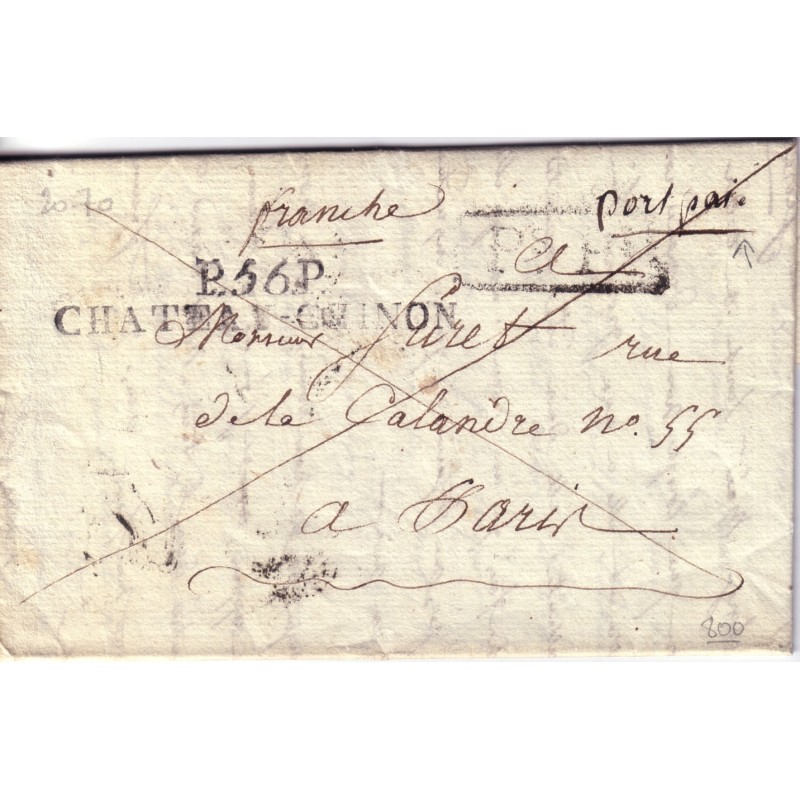 20-70
franche
port pai.
P.P.P.P.
a
P.56.P.
CHATEAU-CHINON
Monsieur Guret rue
de la Calandre no. 55
a Paris
800